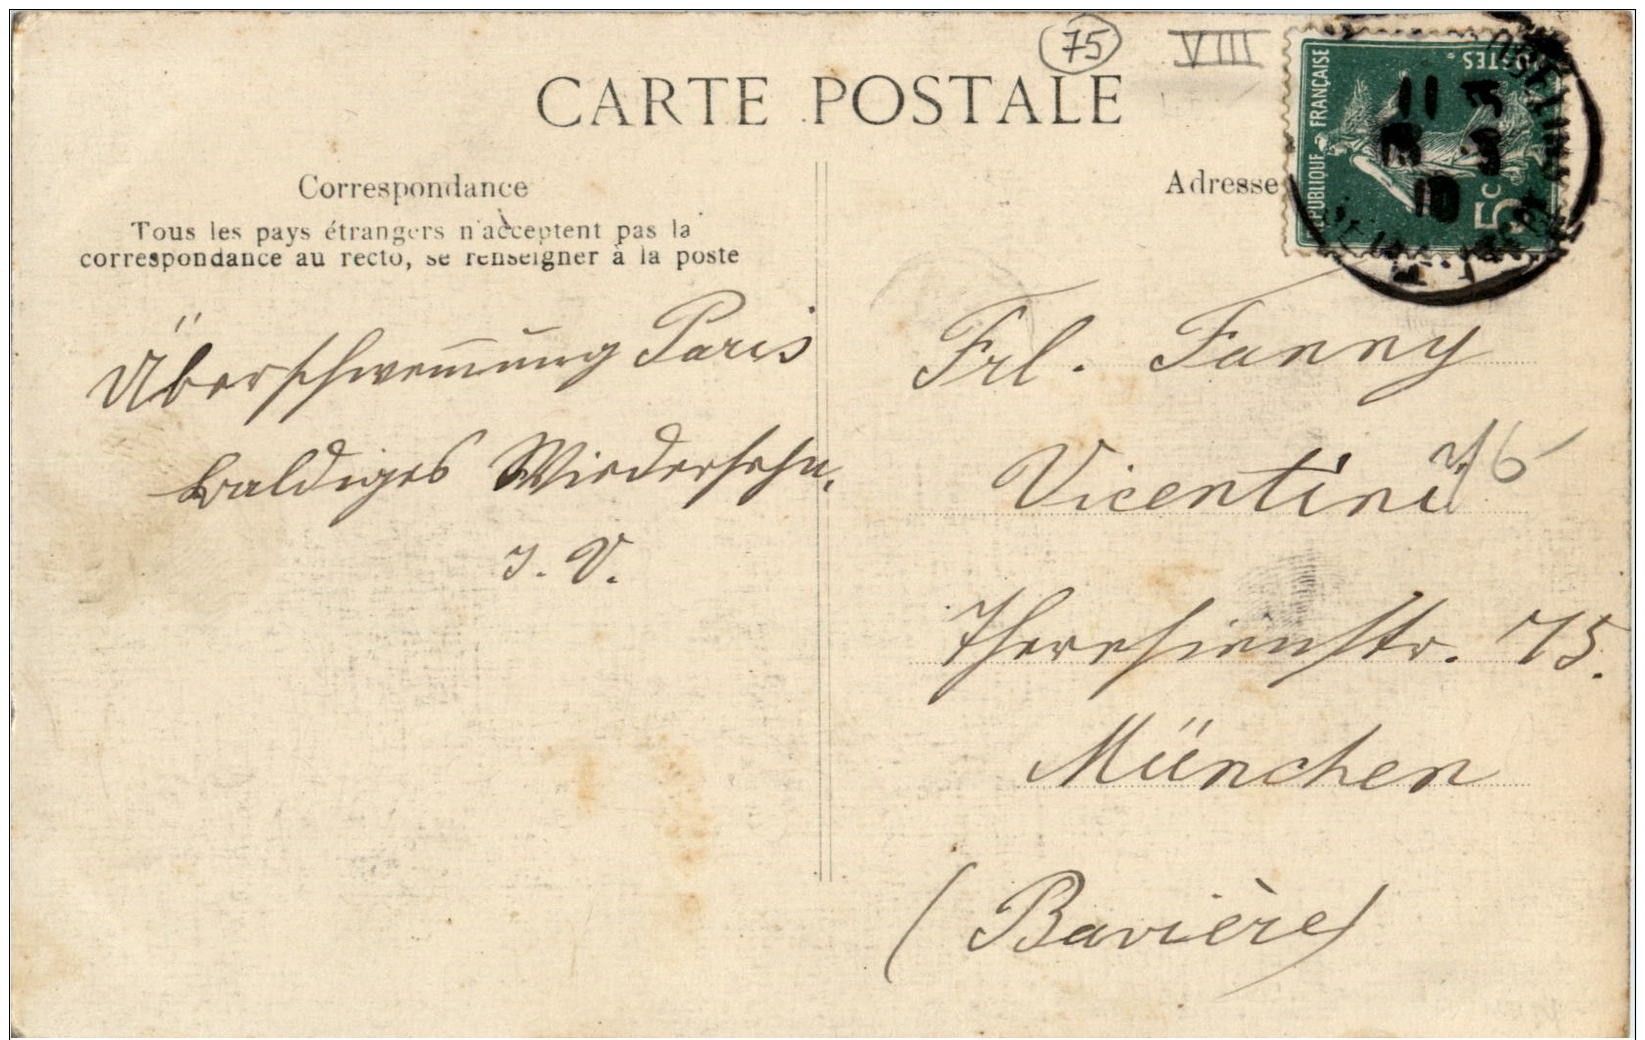 75 VIII
CARTE POSTALE
Correspondance
Tous les pays étrangers n'acceptent pas la
correspondance au recto, se renseigner à la poste
Überschwem̄ung Paris
baldiges Wiedersehn.
J. V.
Adresse
RÉPUBLIQUE FRANÇAISE
POSTES
5c
11 3
10
Frl. Fanny
Vicentini
Theresienstr. 75.
München
(Bavière)